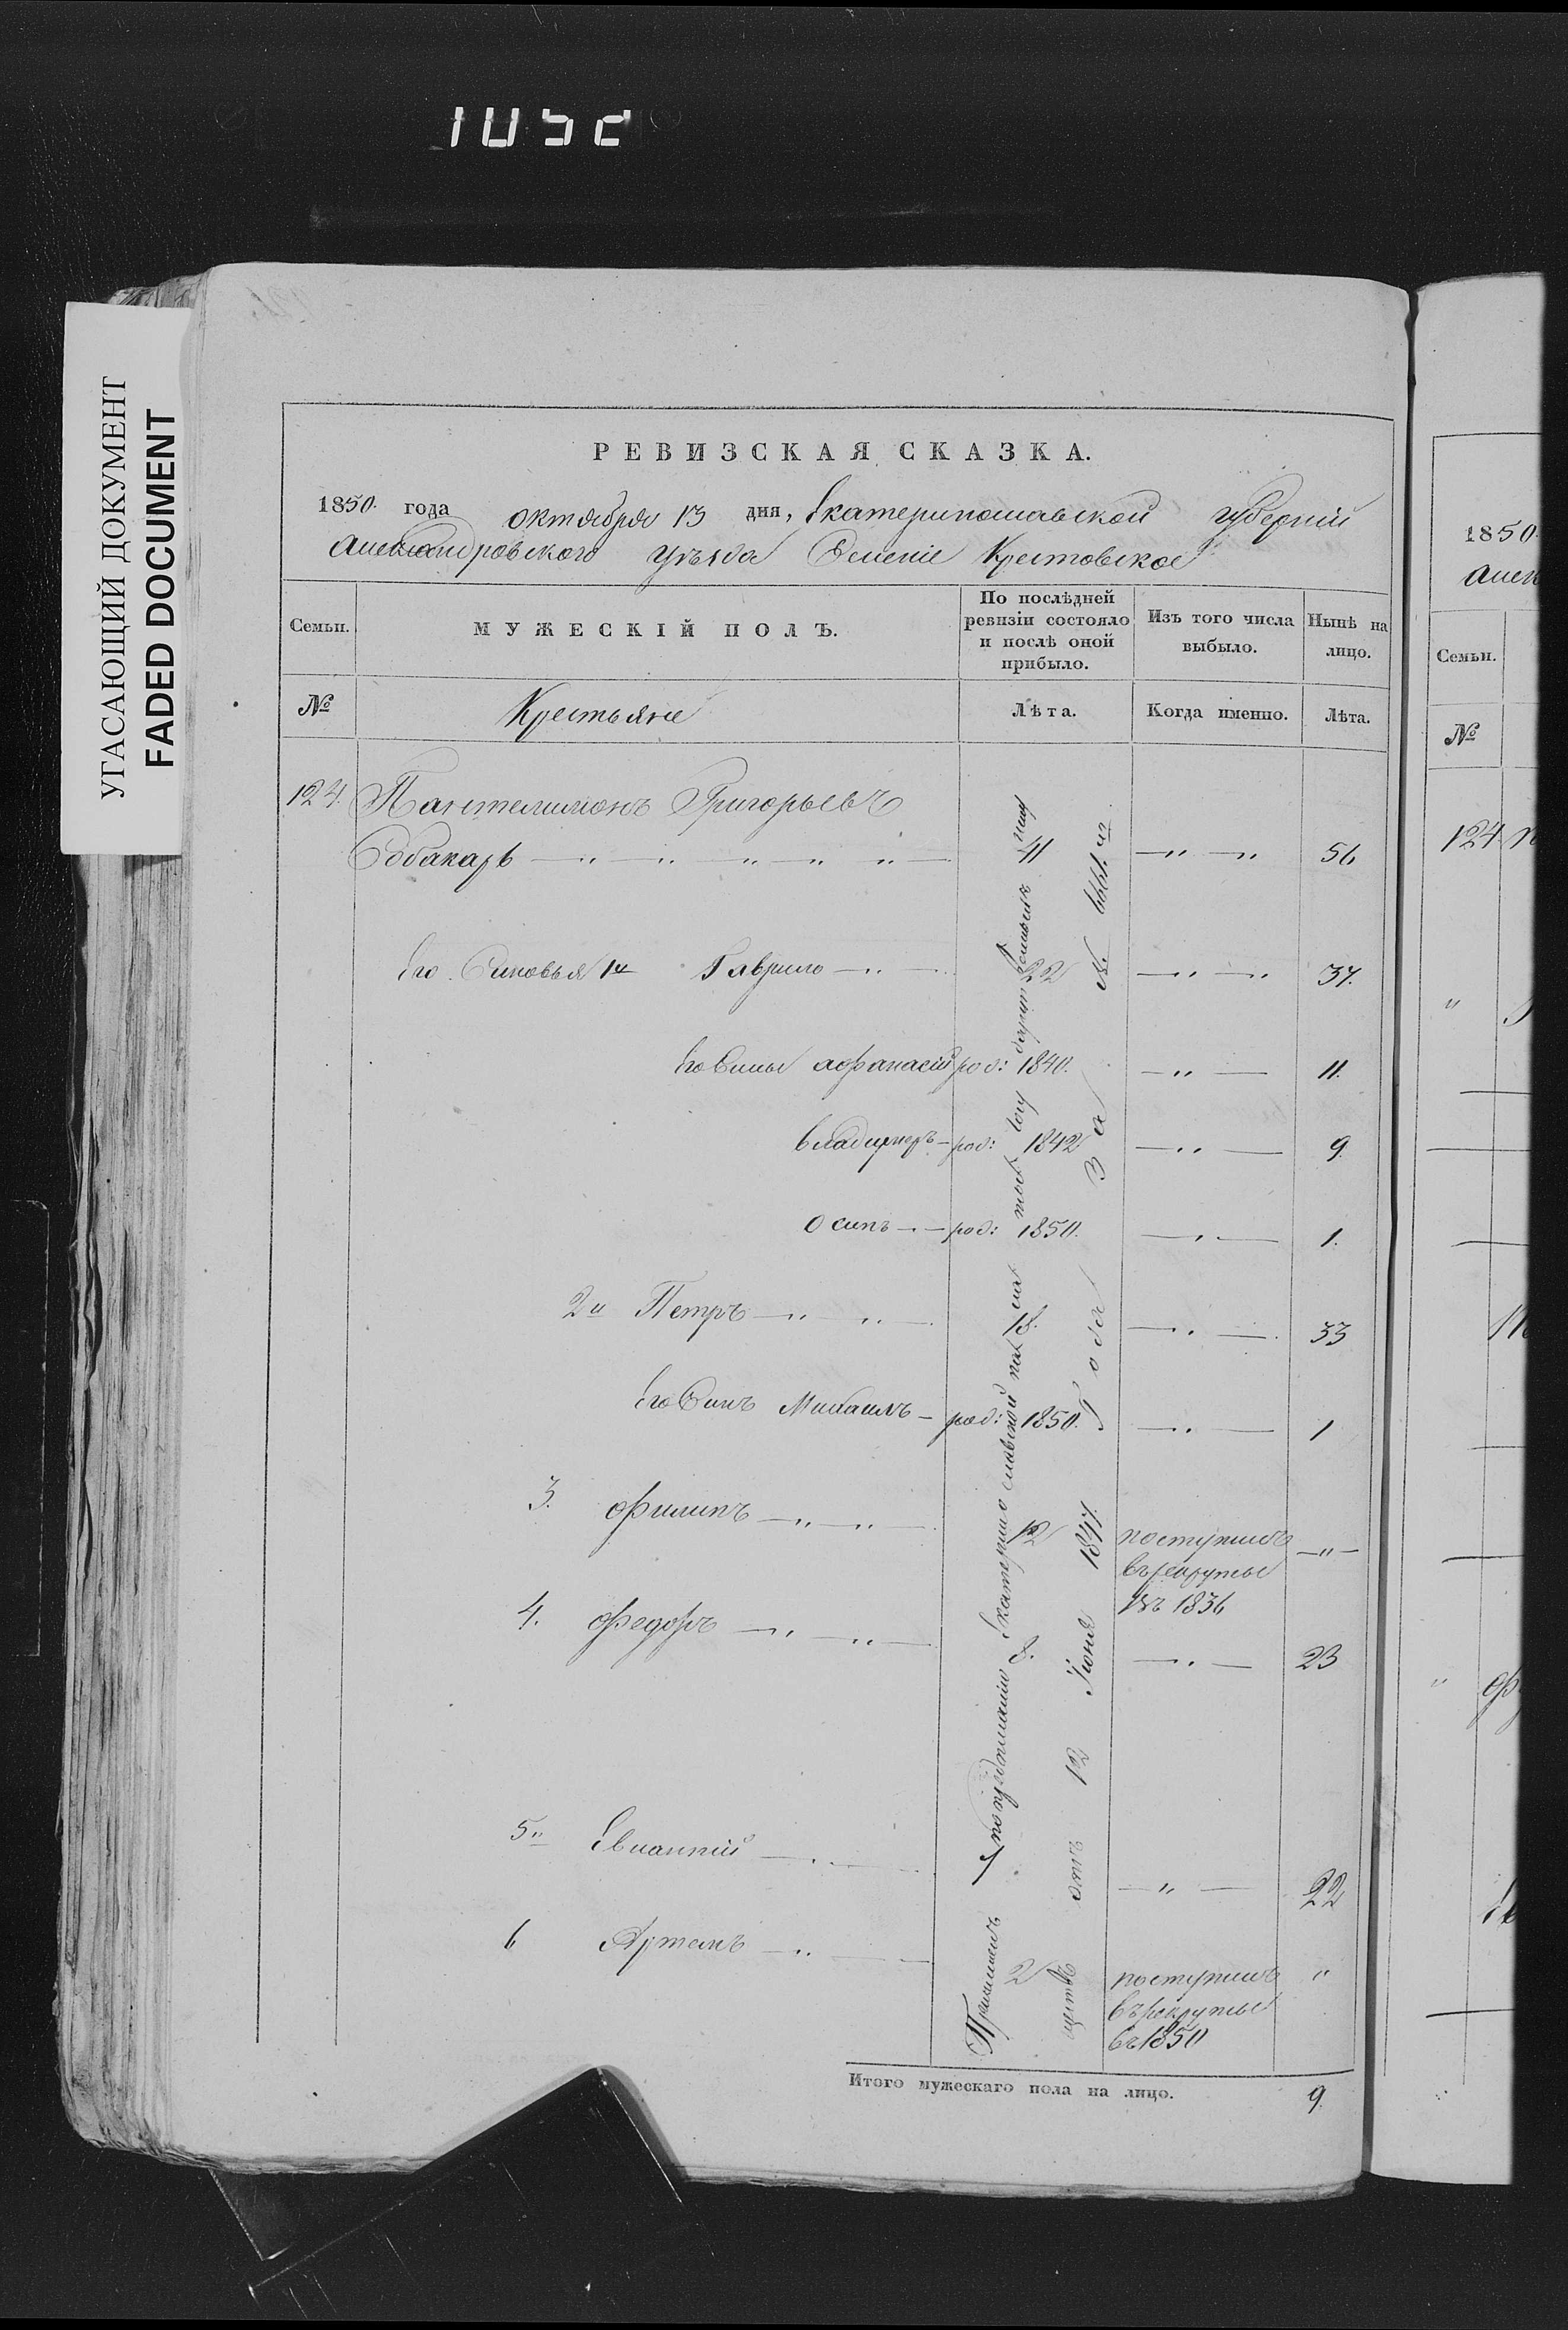 УГАСАЮЩИЙ ДОКУМЕНТ
FADED DOCUMENT
РЕВИЗСКАЯ СКАЗКА.
1850 года октября 13 дня, Екатеринославской губерніи
Александровского уезда Селеніе Крестовское
Семьи.
МУЖЕСКІЙ ПОЛЪ.
По послѣдней ревизіи состояло и послѣ оной прибыло.
Изъ того числа выбыло.
Нынѣ на лицо.
№ Крестьяне Лѣта. Когда именно. Лѣта.
124. Пантелимонъ Григорьевъ
Собакарь — " — " " — " " — 41 — " — " 56
Его Синовья 1й Гаврило — " — 22 — " — " 37.
Его Сины афанасій род: 1840. — " — 11.
владимеръ — род: 1842 — " — 9.
осипъ — " — род: 1850. — " — 1.
2й Петръ — " " — 18. — " — 33
Его Синъ Михаилъ — род: 1850. — " — 1
3. филипъ — " — " — 12 поступилъ — " —
въ рекруты
въ 1836
4. федоръ — " — " — 8. — " — 23
5й Евлампій — " — — " — 22
6 Артемъ — " — 2 поступилъ "
въ рекруты
въ 1850
Причислен по предписанію Екатеринославской
отъ 12 Іюня 1847. Года За №
Итого мужескаго пола на лицо. 9.
1850
Семьи.
№
124